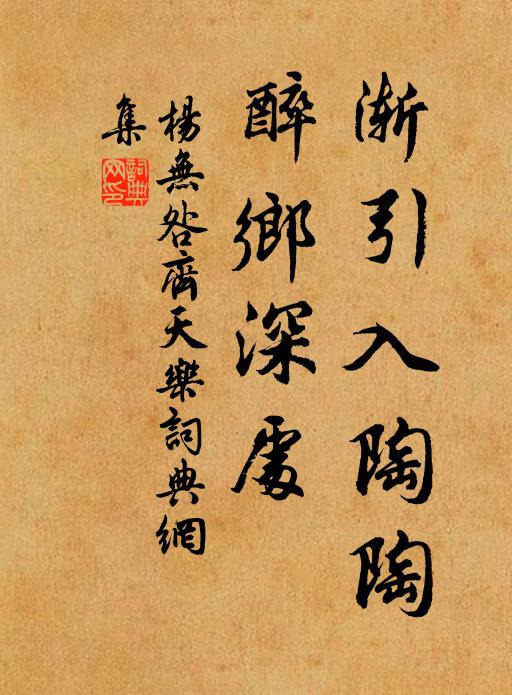 漸引入陶陶
醉鄉深處
楊無咎齊天樂詞典網
集
詞典網印